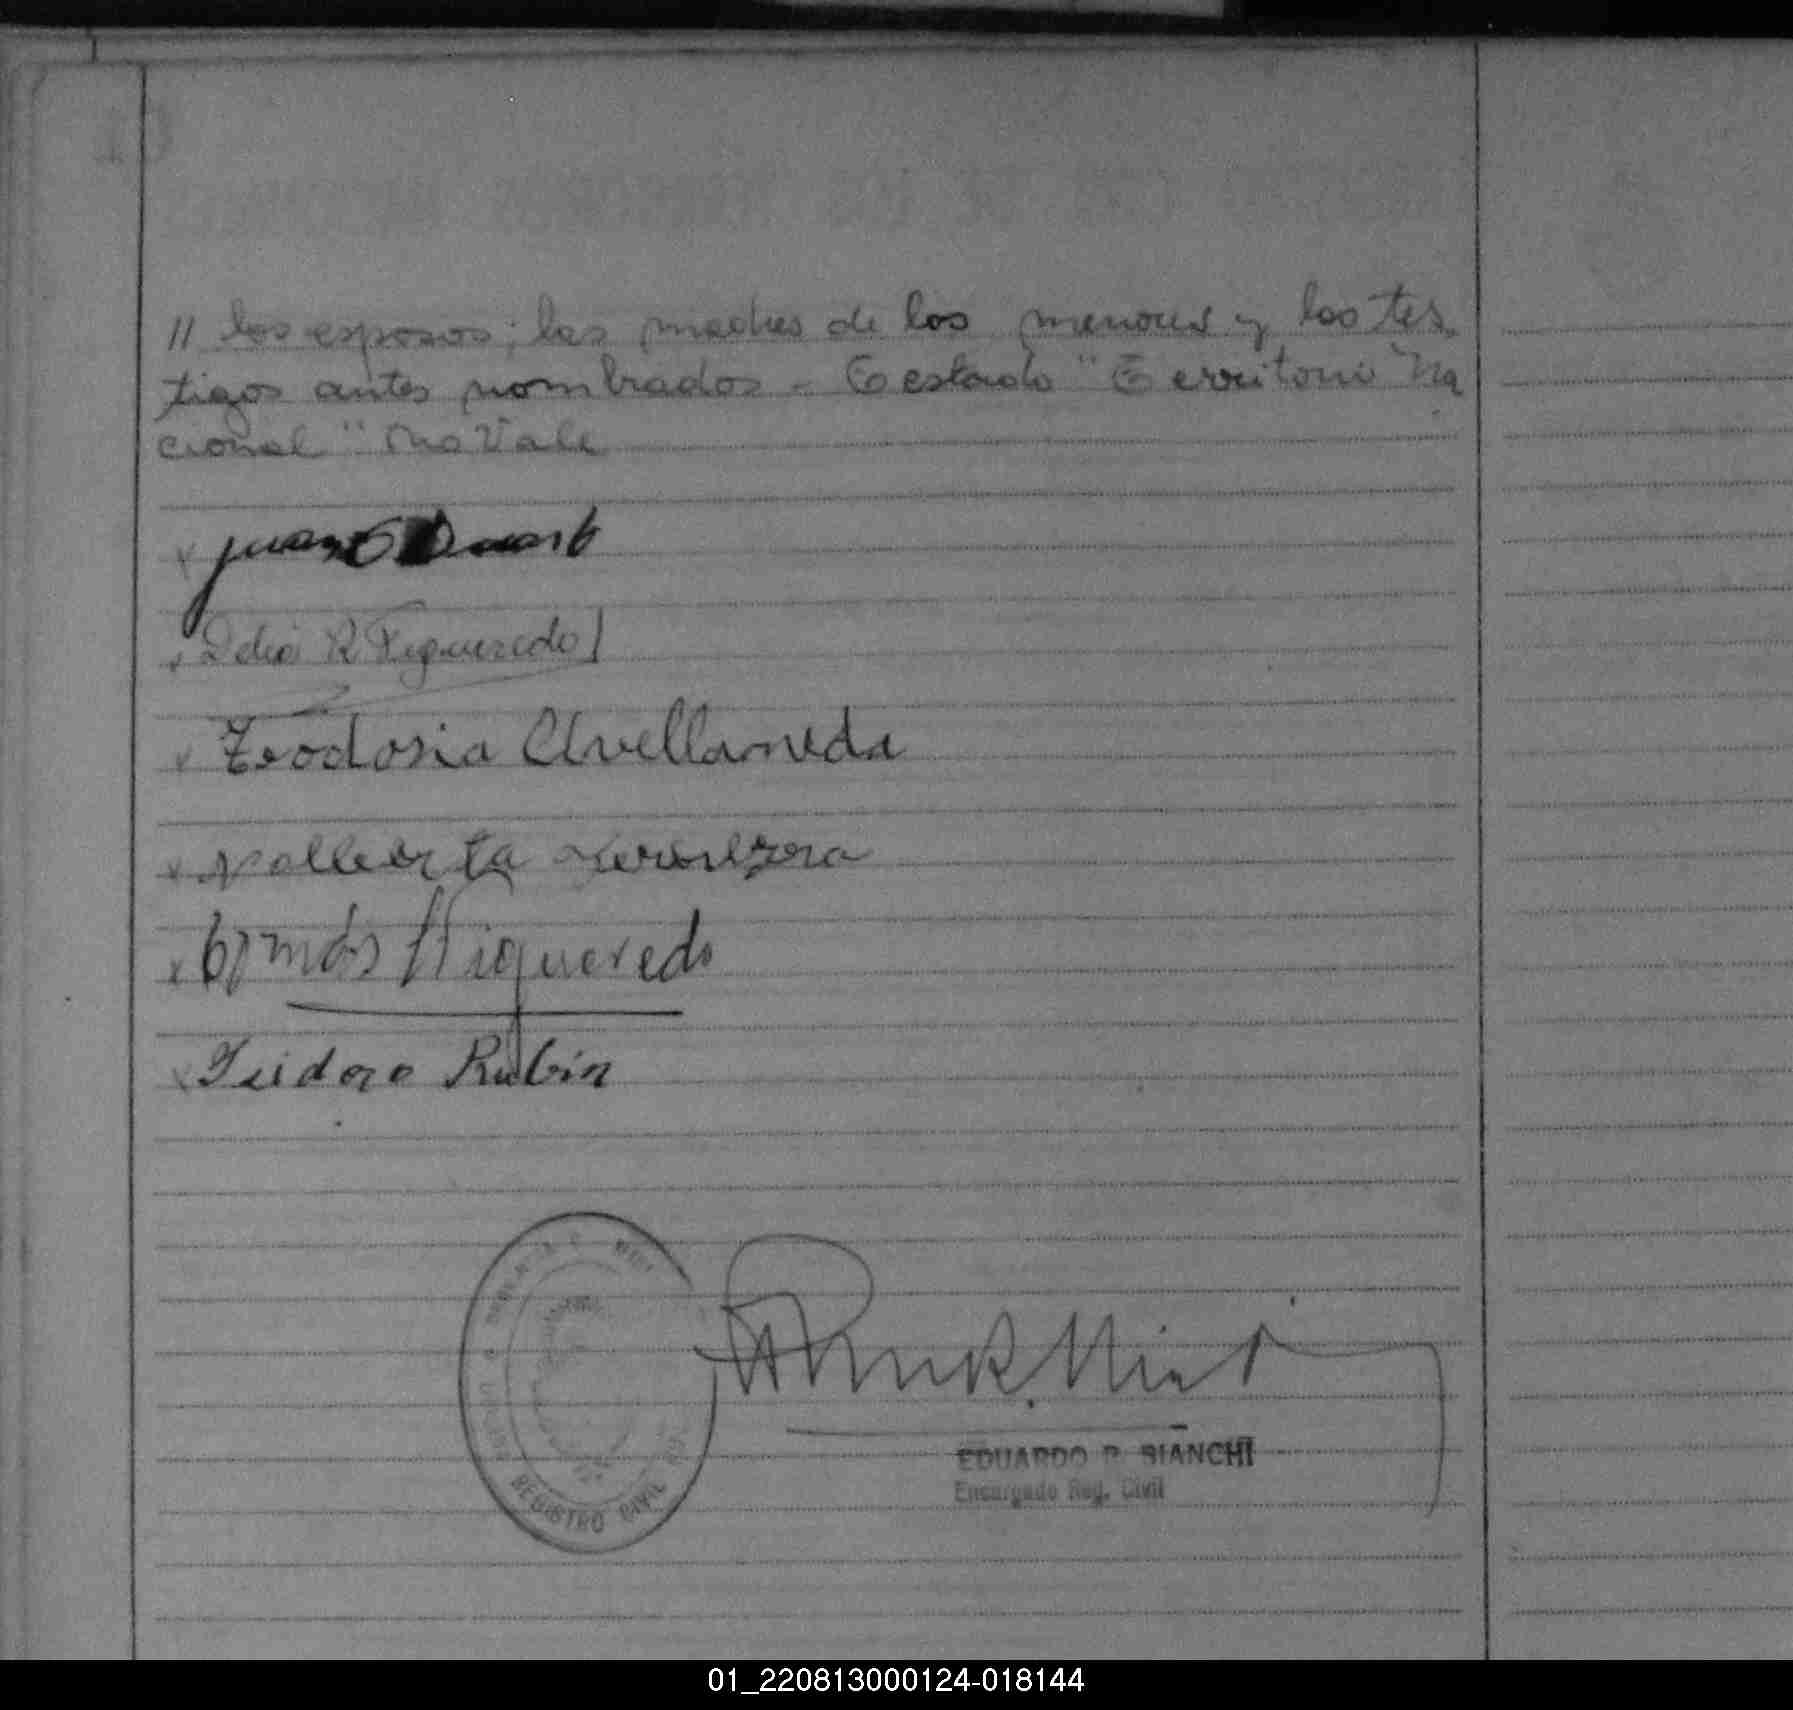 // los esposos; las madres de los menores y los tes-
tigos antes nombrados - Testado "Territorio Na
cional" no Vale
Juan Duarte
Delia R Figueredo
Teodosia Avellaneda
Tomás Figueredo
Isidoro Rubin
REGISTRO CIVIL
EDUARDO R. BIANCHI
Encargado Reg. Civil
01_220813000124-018144